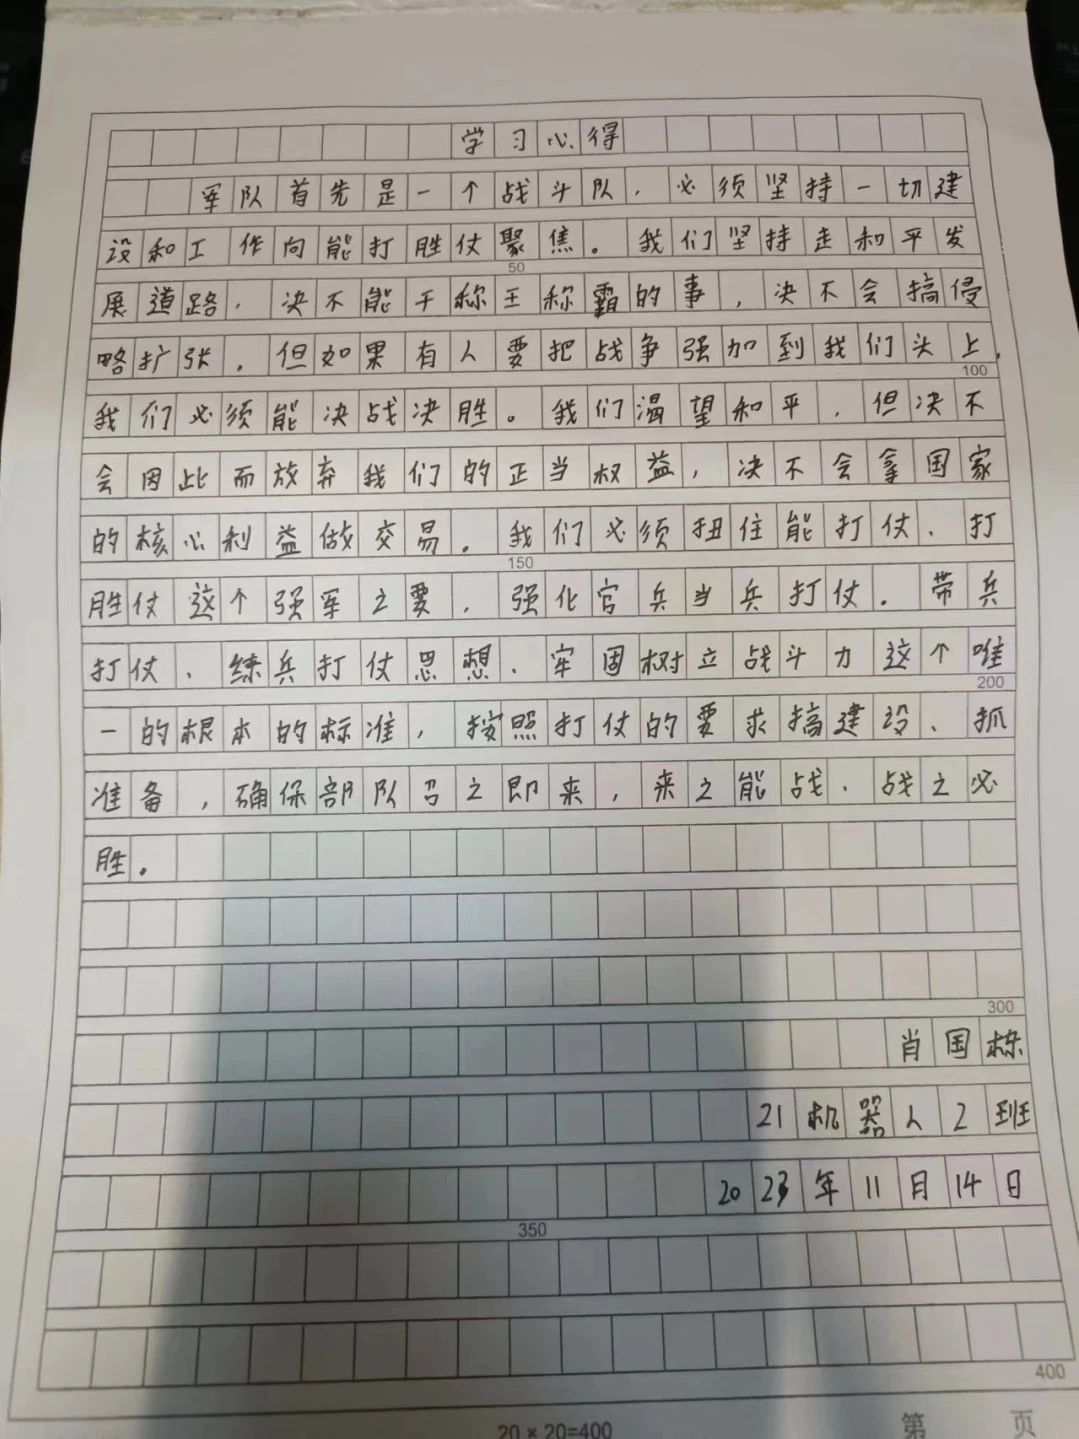 学习心得
军队首先是一个战斗队，必须坚持一切建
设和工作向能打胜仗聚焦。我们坚持走和平发
展道路，决不能干称王称霸的事，决不会搞侵
略扩张，但如果有人要把战争强加到我们头上，
50
100
我们必须能决战决胜。我们渴望和平，但决不
会因此而放弃我们的正当权益，决不会拿国家
的核心利益做交易。我们必须扭住能打仗、打
150
胜仗这个强军之要，强化官兵当兵打仗、带兵
打仗、练兵打仗思想，牢固树立战斗力这个唯
200
一的根本的标准，按照打仗的要求搞建设、抓
准备，确保部队召之即来，来之能战，战之必
胜。
300
肖国栋
21机器人2班
2023年11月14日
350
400
20×20=400
第 页